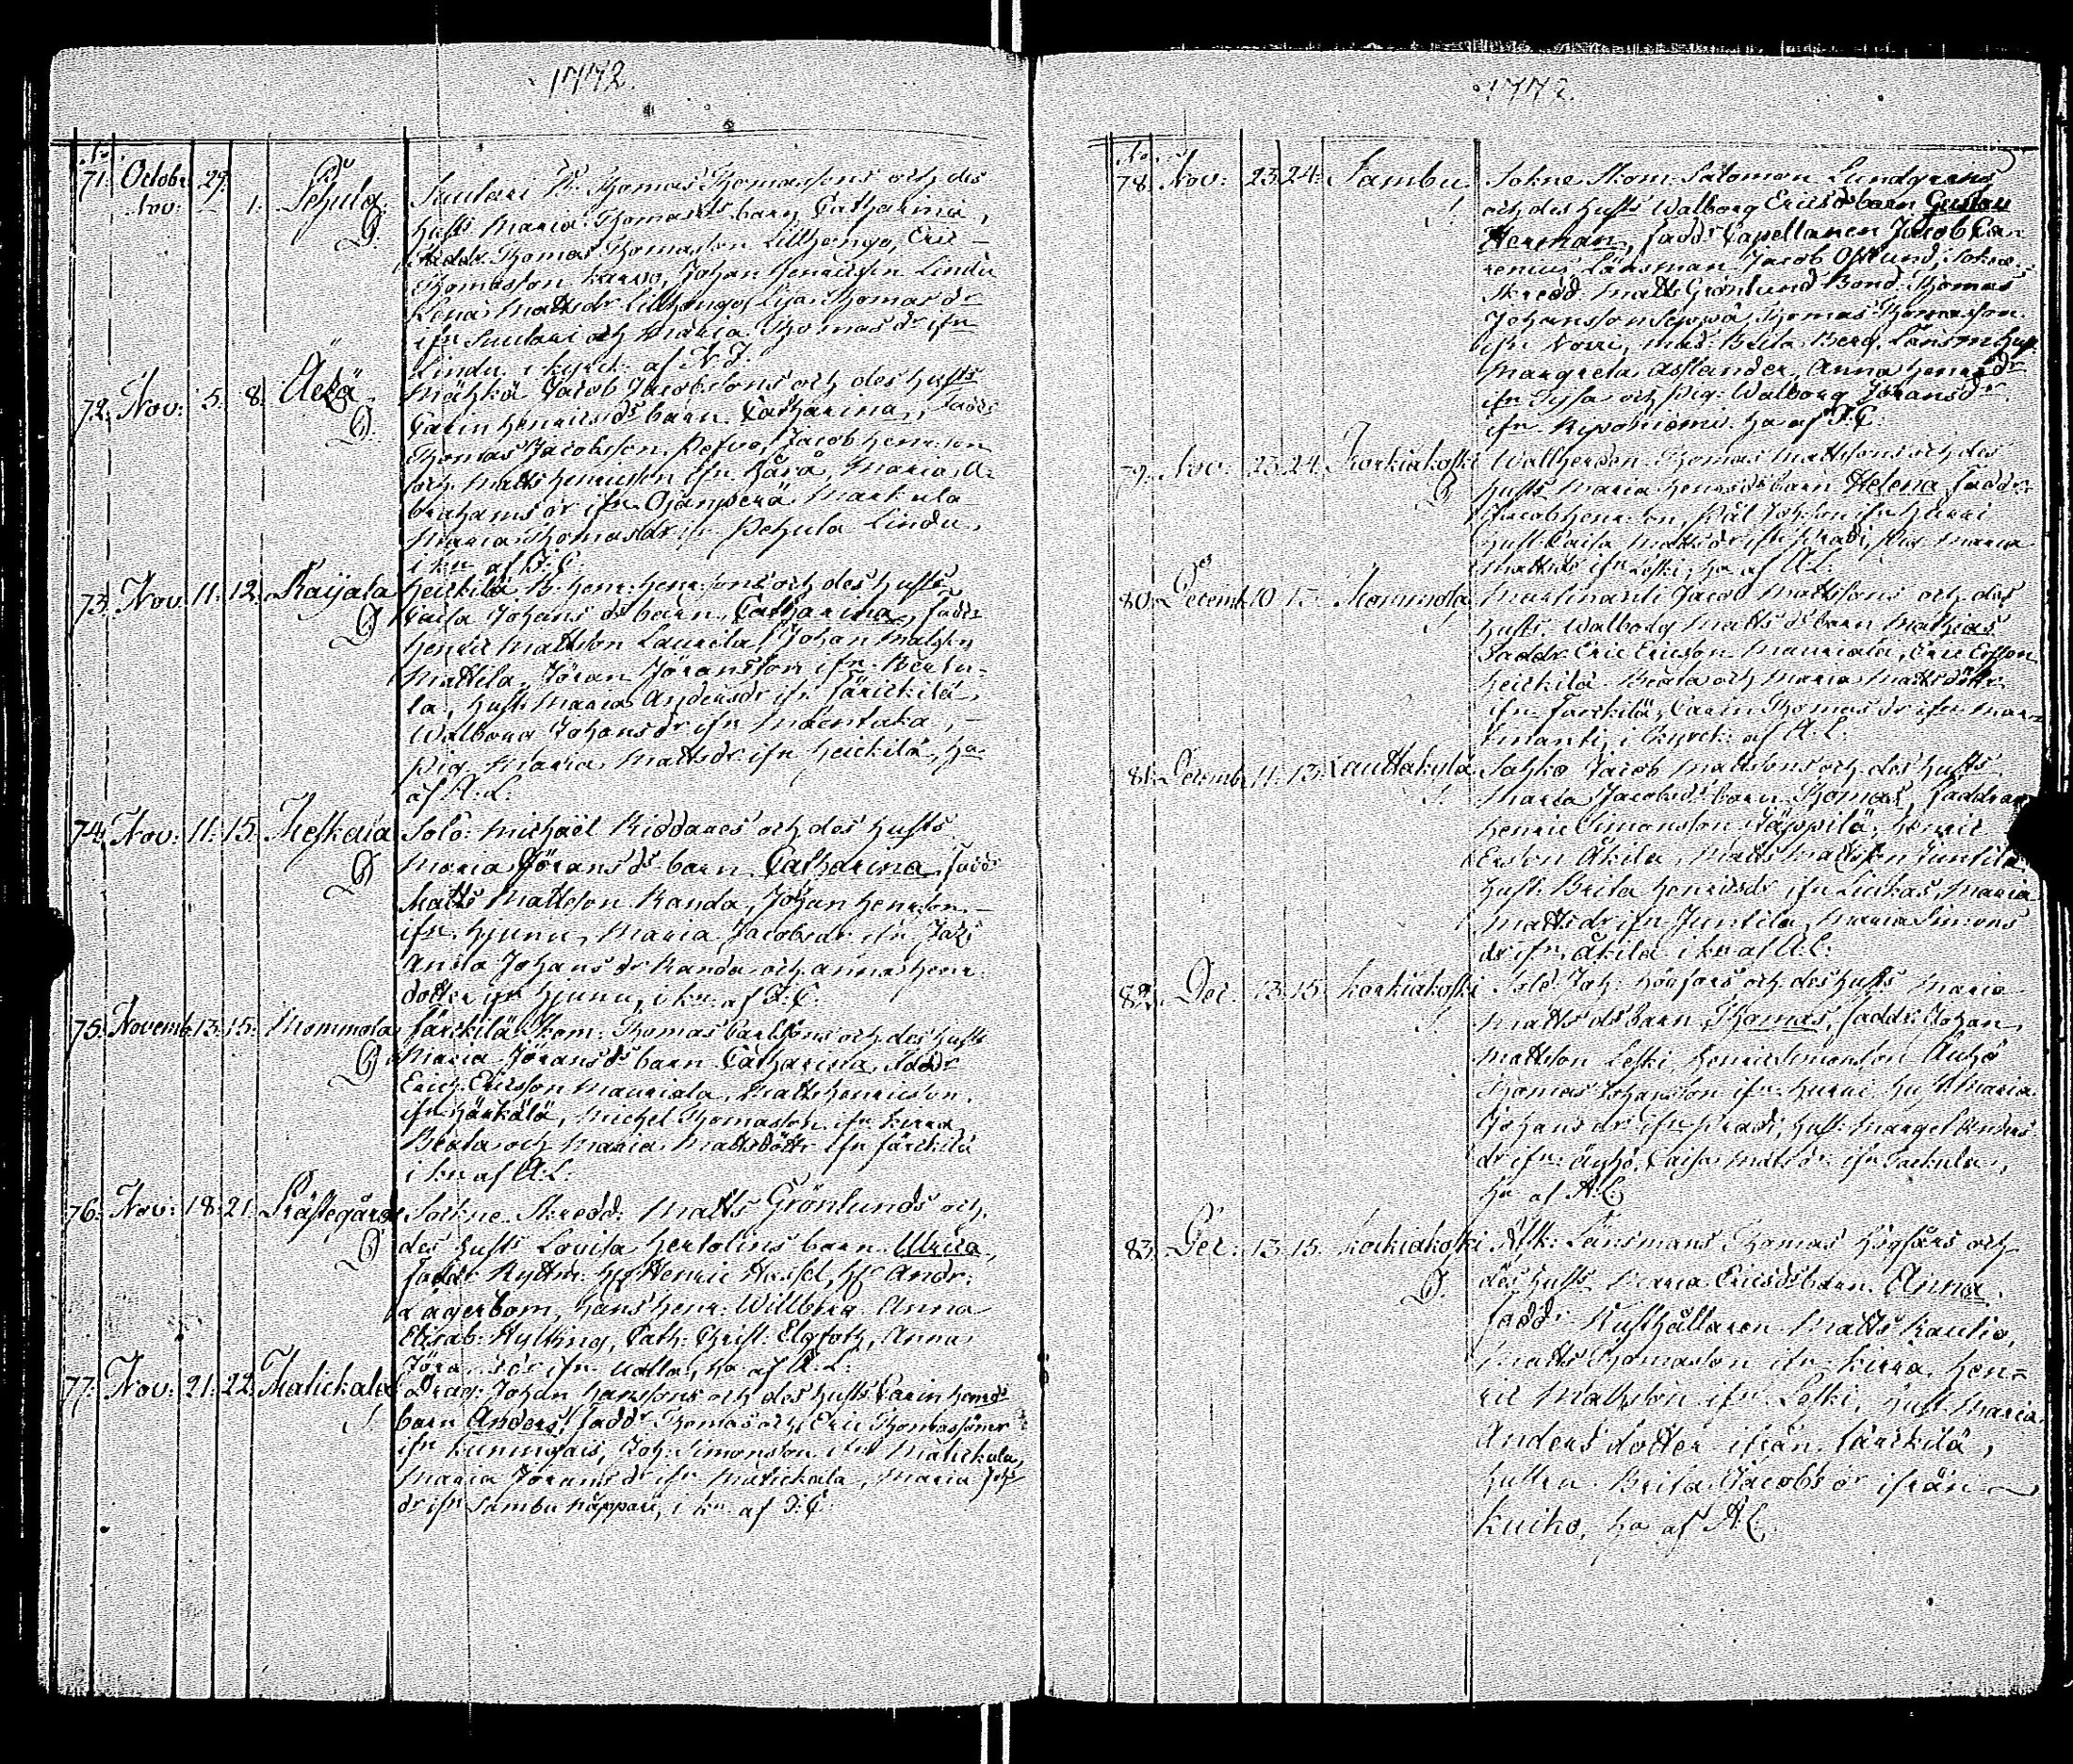 1772.
No.
71. Octobr 29.
Nov: 1. Pehula D. Suutari B. Thomas Thomassons och des
hust. Maria Thomæds barn Catharina,
Fadd. Thomas Thomasson Lillhongo, Eric
Thomasson Karvo, Johan Henricsson Lindu
Lena Mattsdr Lillhongo, Lisa Thomasdr
ifr Suutari och Maria Thomasdr ifr
Lindu i kyrck: af
72. Nov: 5. 8. D. Mähkä Jacob Jacobssons och des husts
Carin Henricsds barn Catharina, Fadd
Thomas Jacobsson Pesvo, Jacob Henrsson
och Matts Henricsson ifr Maria A-
brahamsdr ifr Ojanperä Markula
Maria Thomasdr ifr Pehula Lindu,
i kr af J:C:
73. Nov. 11. 12. Raijala D Heickilä B. Henr: Henr:sons och des husts
Caisa Johansds barn Catharina, Fadd
Henric Mattsson Laurila, Johan Mattsson
Mattila, Jöran Jöransson ifr Bertu-
la, hust. Maria Andersdr ifr Järickilä,
Walborg Johansdr ifr
Pig. Maria Mattsdr ifr Heickilä, ha
af A:L:
74. Nov: 11. 15. Keskiäiä D Sold: Michaël Riddares och des husts
Maria Jöransds barn Catharina, Fadd
Matts Mattsson Randa, Johan Henrsson
ifr Hjunu, Maria Jacobsdr ifr
Anna Johansdr Randa och Anna Henr
dotter ifr Hjunu, i kr: af J:C:
75. Novemb. 13. 15. Mommola D Järckilä Skom: Thomas Carlssons och des husts
Maria Jöransds barn Catharina, Fadd
Erich Ericsson Mauriala, Matts Henricson
ifr Härkälä, Michel Thomasson ifr Kirra
Beata och Maria Mattsdöttr ifr Järckilä
i kr af A:L:
76. Nov: 18. 21. Prästegård D Sockne Skredd: Matts Grönlunds och
des husts Lovisa Hertolins barn Ulrica,
fadd Ryttm: Hr Henric Hassel, Hr Andr:
Lagerbom, Hans Henr: Willberg Anna
Elisab: Hylling, Cath: Christ: Elgfoth, Anna
ifr Ualla, ha af A:L:
77. Nov: 21. 22. Matickala S. Drag: Johan Hanssons och des husts Carin Henrds
barn Anders, fadd Thomas och Eric Thomassöner
ifr Kuningais, Joh: Simonsson ifr Matickala,
Maria Jöransdr ifr Matickala, Maria Joh
dr ifr Sambu Näppari, i kr af J:C:
1772.
No.
78. Nov: 23. 24. Sambu S. Sokne Skom: Salomon Lundgrens
och des husts Walborg Ericsds barn Gustav
Herman, fadd Capellanen Jacob Ca-
renius, Länsman Jacob Östlund, Sokne
Skredd. Matts Grönlund Bond: Thomas
Johansson Thomas Thomasson
ifr Norri, Mad: Brita Berg, Länsm:hust
Margreta Asslander, Anna Henrdr
ifr och Pig: Walborg Jöransdr
ifr Ripoiniemi. ha af J:C:
79. Nov. 23. 24. Korkiakoski D Thomas Mattssons och des
husts Maria Henrsds barn Helena, Fadd
Jacob Henr:son, Pål Joh:son ifr Hurri
hust: Caisa Mattsdr ifr Pradi, Pig Maria
Mattsdr ifr Leski, ha af A:L:
80. Decemb. 10. 13. Mommola S. Martinanti Jacob Mattssons och des
husts: Walborg Mattsds barn Mathias
Faddr Eric Ericson Mauriala, Eric Ersson
Heickilä Beata och Maria Mattsdöttr
ifr Jarckilä, Carin Thomasdr ifr Mar-
tinanti i kyrck: af A:L:
81. Decemb. 11. 13. Lauttakylä S. Sahko Jacob Mattssons och des husts
Maria Jacobsds barn Thomas, faddrar
Henric Simonsson Jäppilä, Henric
Ersson Äkilä, Matts Mattsson Juntila
hust: Brita Henricsdr ifr Liukas, Maria
Mattsdr ifr Juntila, Maria Simons
dr ifr Äkilä i kr af A:L:
82. Dec. 13. 15. Korkiakoski S. Sold Joh: Högfors och des husts Maria
Mattsds barn Thomas, faddr Johan
Mattsson Leski, Henric Simonsson Äuhö
Thomas Johansson ifr Hurri hust Maria
Johansdr ifr Pradi, hust: Marget Anders
dr ifr Äuhö, Caisa Matsdr ifr
ha af A:L:
83. Dec. 13. 15. Korkiakoski D. Afsk: Länsmans Thomas Högfors och
des husts Maria Ericsds barn Anna
fadd: Rusthållaren Matts Rautio,
Matts Thomasson ifr Kirra, Hen-
ric Mattsson ifr Leski, hust Maria
Anders dotter ifrån Järckilä,
hustru Brita Jacobsdr ifrån
Kuiko, ha af A:L: